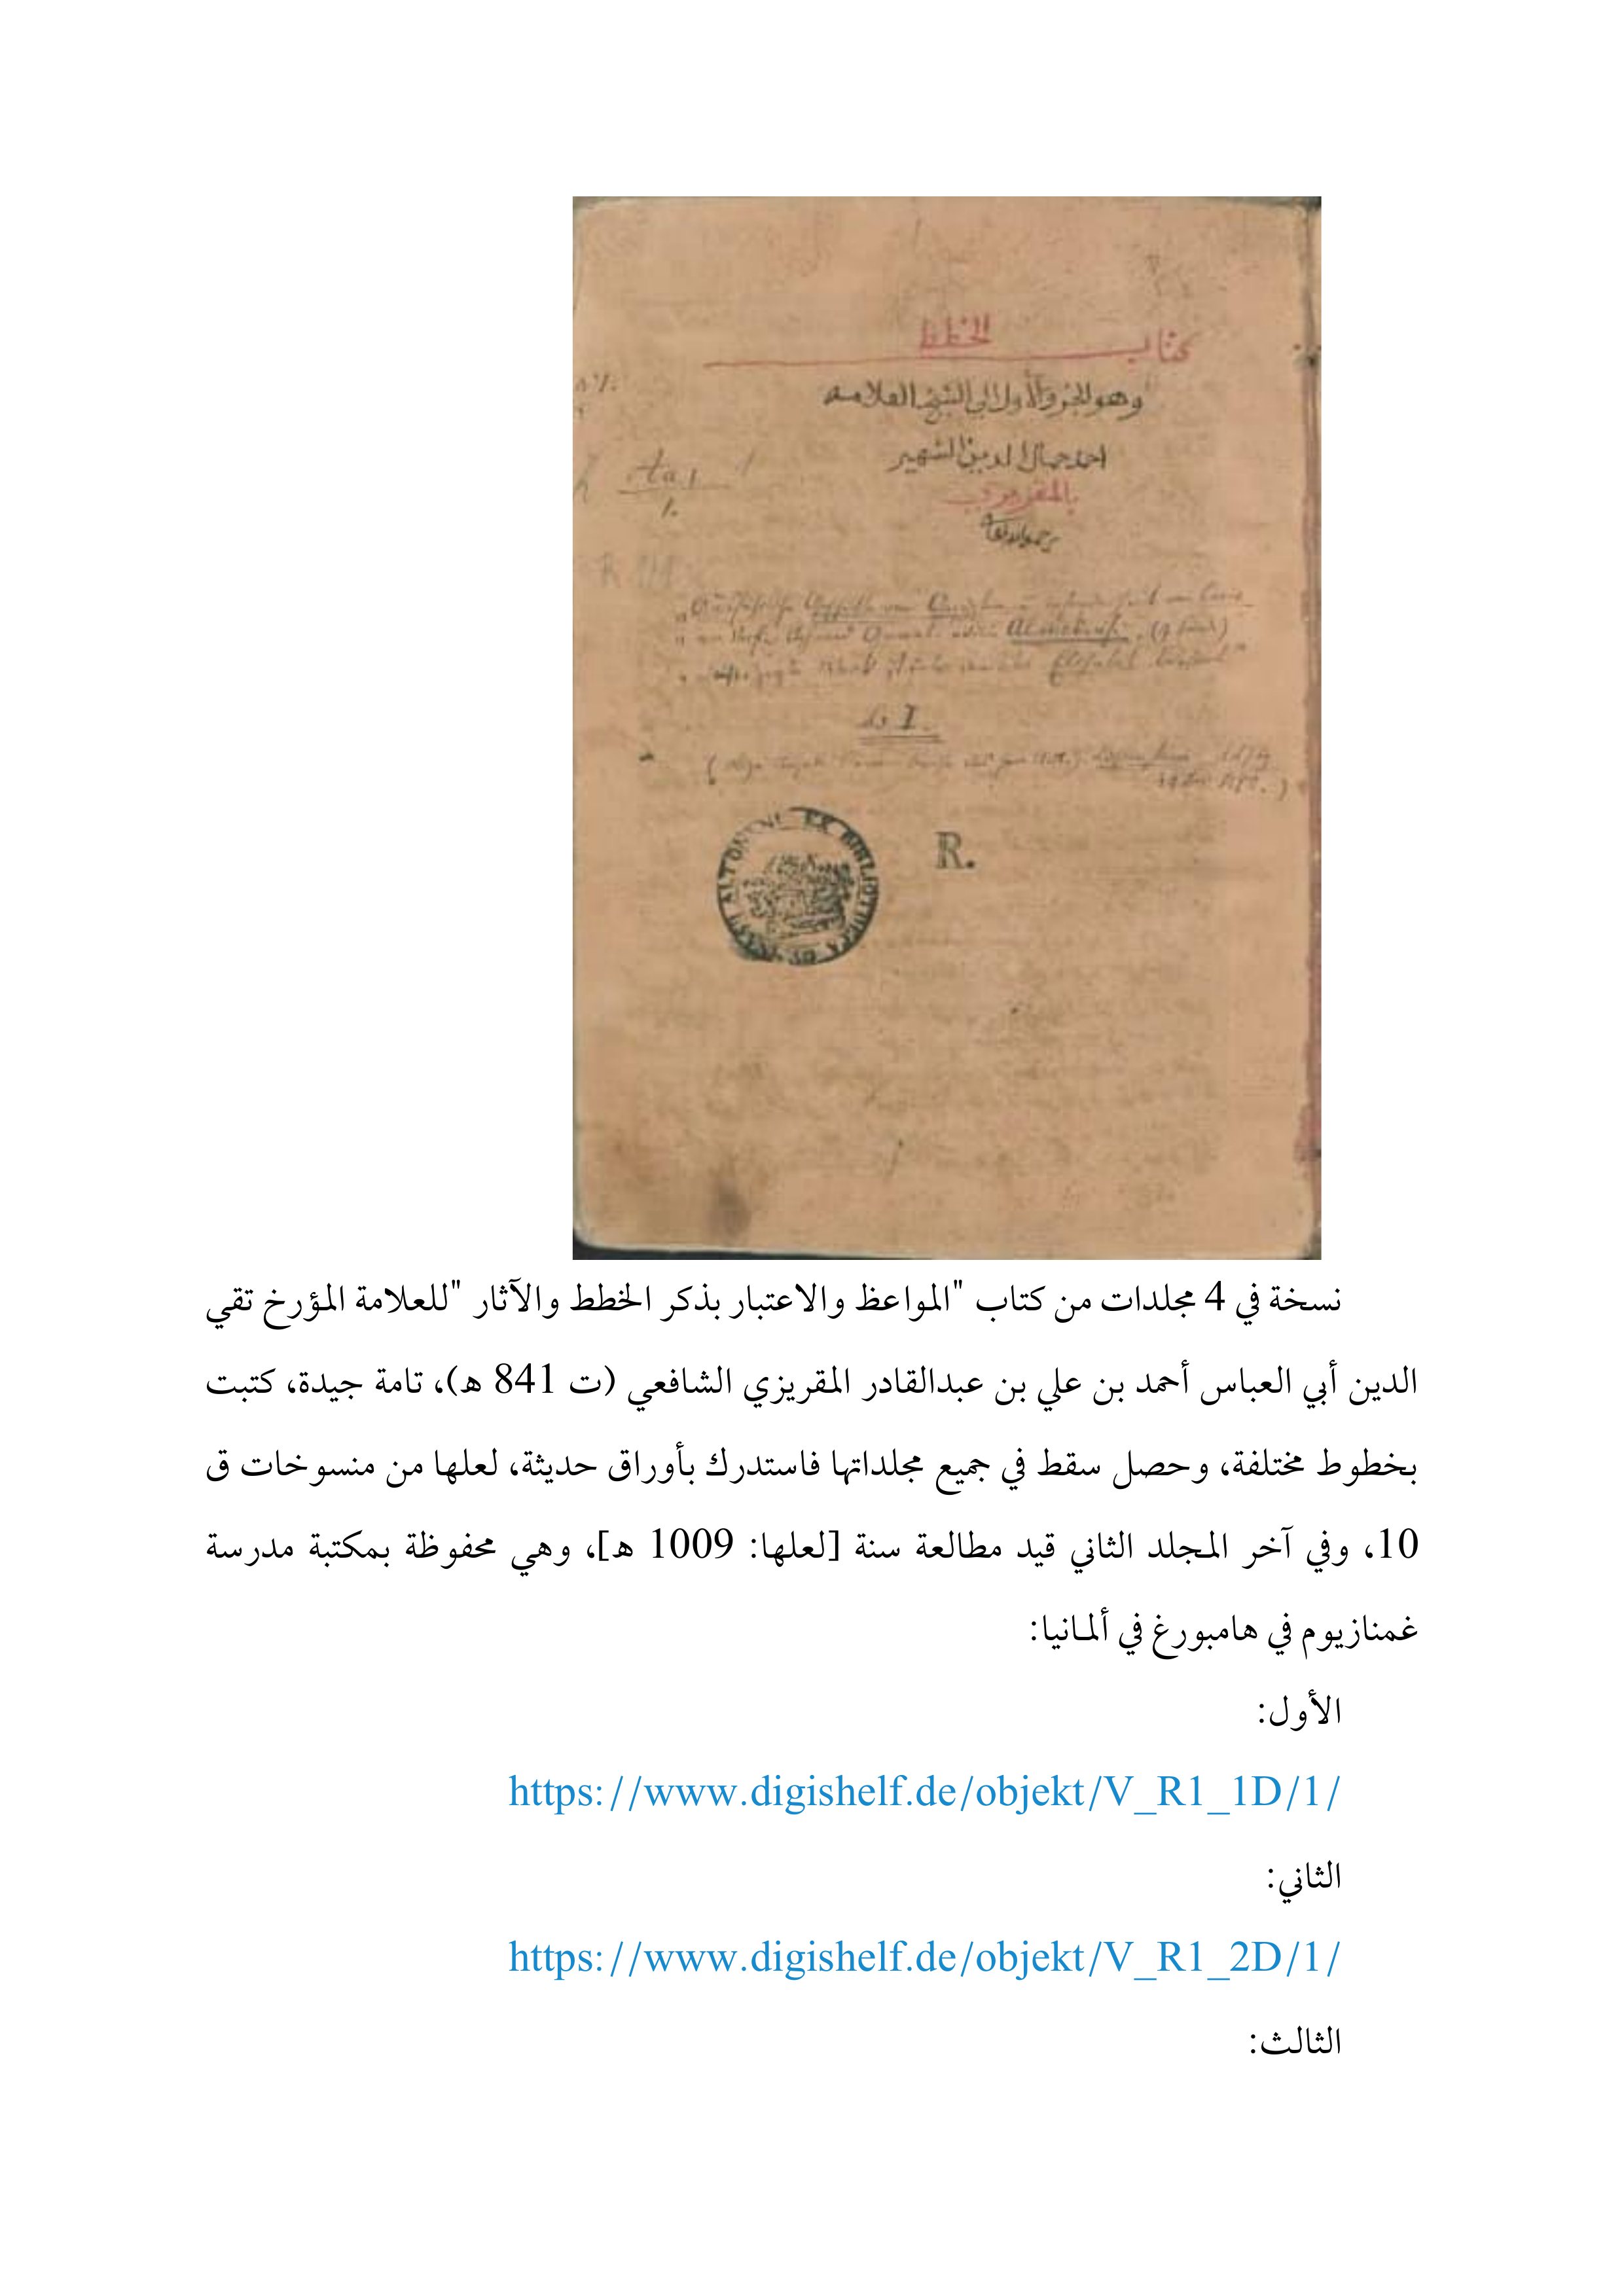 كتاب الخطط
وهو الجزو الأول الى الشيخ العلامه
احمد جمال الدين الشهير
بالمقريزي
رحمه الله تعالى
R.
نسخة في 4 مجلدات من كتاب "المواعظ والاعتبار بذكر الخطط والآثار "للعلامة المؤرخ تقي
الدين أبي العباس أحمد بن علي بن عبدالقادر المقريزي الشافعي (ت 841 ه)، تامة جيدة، كتبت
بخطوط مختلفة، وحصل سقط في جميع مجلداتها فاستدرك بأوراق حديثة، لعلها من منسوخات ق
10، وفي آخر المجلد الثاني قيد مطالعة سنة [لعلها: 1009 ه]، وهي محفوظة بمكتبة مدرسة
غمنازيوم في هامبورغ في ألمانيا:
الأول:
https://www.digishelf.de/objekt/V_R1_1D/1/
الثاني:
https://www.digishelf.de/objekt/V_R1_2D/1/
الثالث: